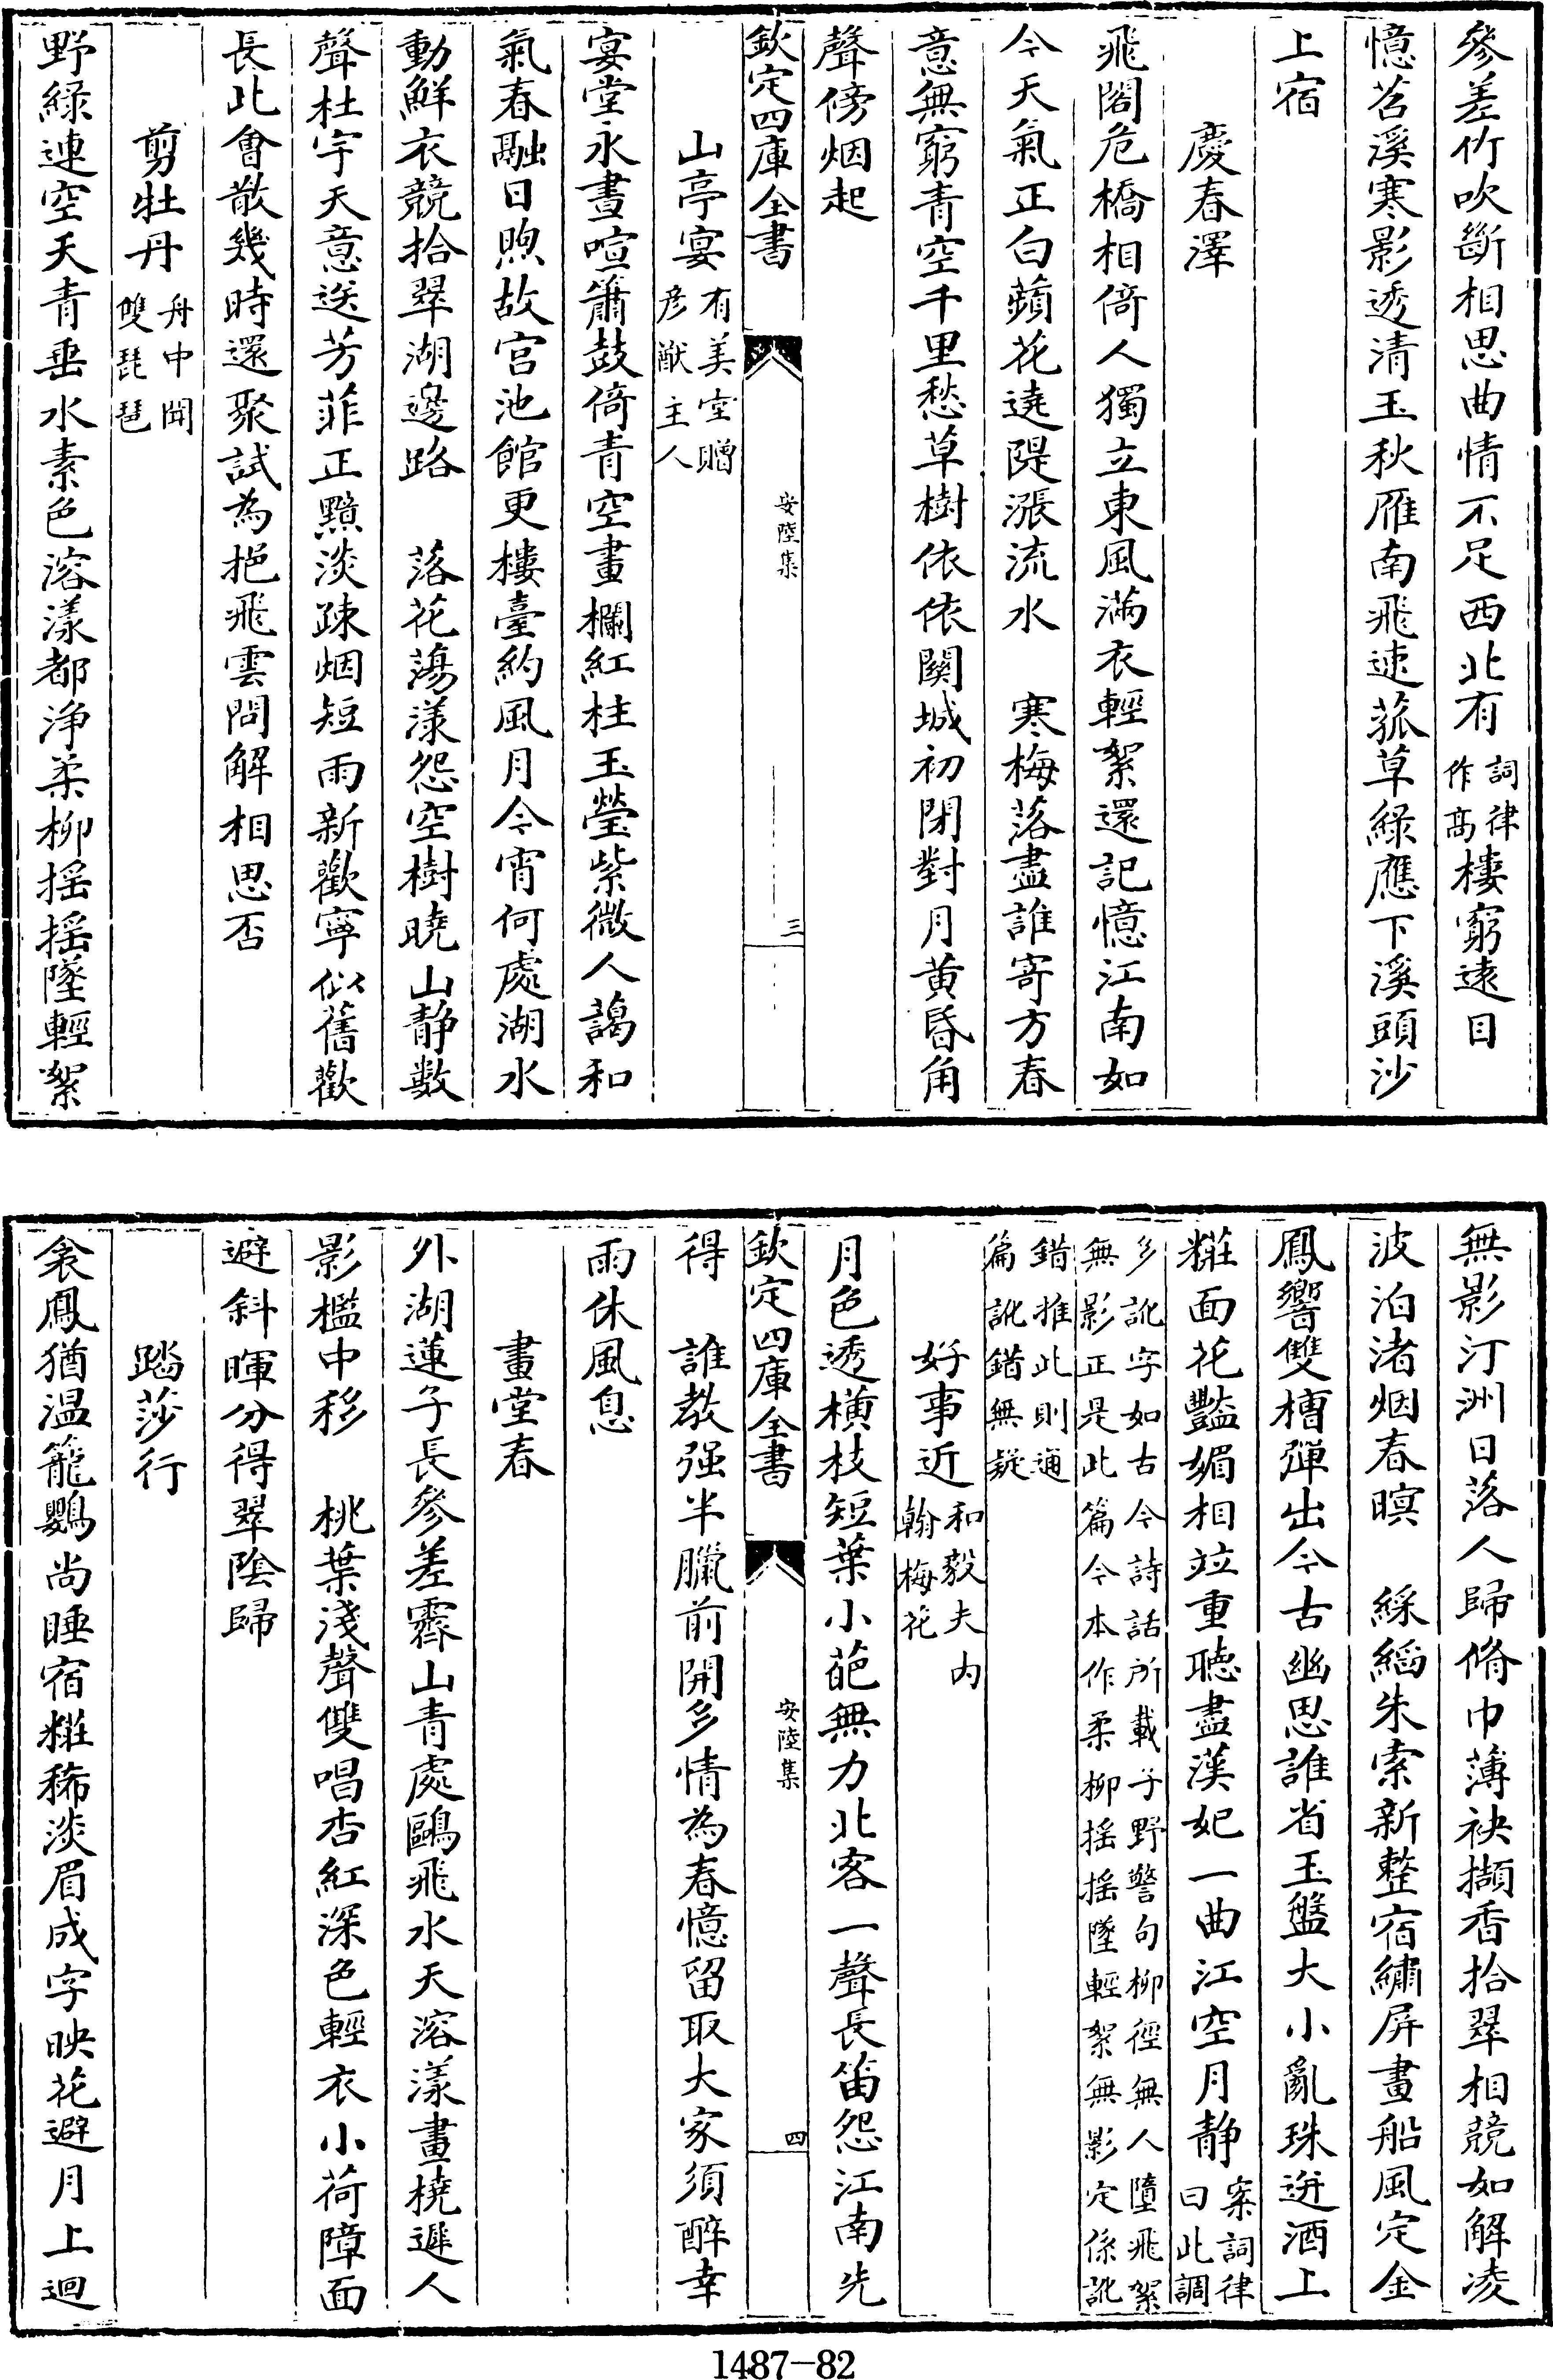 參差竹吹斷相思曲情不足西北有詞律作髙樓窮遠目
憶苕溪寒影透清玉秋雁南飛速菰草緑應下溪頭沙
上宿
慶春澤
飛閣危橋相倚人獨立東風滿衣輕絮還記憶江南如
今天氣正白蘋花遶隄漲流水　寒梅落盡誰寄方春
意無窮青空千里愁草樹依依闗城初閉對月黄昏角
聲傍烟起
欽定四庫全書
安陸集
三
山亭宴有美堂贈彦猷主人
宴堂永晝喧簫鼓倚青空畫欄紅柱玉瑩紫微人藹和
氣春融日煦故宫池館更樓臺約風月今宵何處湖水
動鮮衣競拾翠湖邊路　落花蕩漾怨空樹曉山静數
聲杜宇天意送芳菲正黯淡疎烟短雨新歡寧似舊歡
長此會散幾時還聚試為挹飛雲問解相思否
剪牡丹舟中聞雙琵琶
野緑連空天青垂水素色溶漾都浄柔柳揺揺墜輕絮
無影汀洲日落人歸脩巾薄袂擷香拾翠相競如解凌
波泊渚烟春暝　綵縚朱索新整宿繡屏畫船風定金
鳳響雙槽彈出今古幽思誰省玉盤大小亂珠迸酒上
糚面花豔媚相竝重聴盡漢妃一曲江空月静案詞律曰此調
多訛字如古今詩話所載子野警句柳徑無人墮飛絮
無影正是此篇今本作柔柳揺揺墜輕絮無影定係訛
錯推此則通篇訛錯無疑
好事近和毅夫内翰梅花
月色透横枝短葉小葩無力北客一聲長笛怨江南先
欽定四庫全書
安陸集
四
得　誰教强半臘前開多情為春憶留取大家須醉幸
雨休風息
畫堂春
外湖蓮子長參差霽山青處鷗飛水天溶漾畫橈遲人
影檻中移　桃葉淺聲雙唱杏紅深色輕衣小荷障面
避斜暉分得翠陰歸
踏莎行
衾鳳猶温籠鸚尚睡宿糚稀淡眉成字映花避月上迴
1487—82